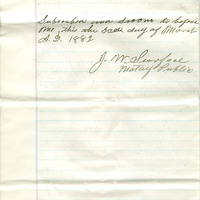 Subscribed and sworn to before
me, this the day of March
A.D. 1882
J. W.
Notary Public